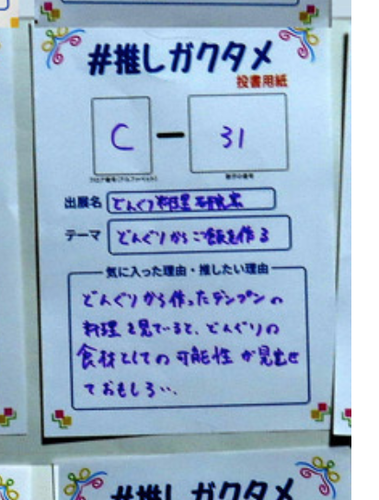 #推しガクタメ
投書用紙
C - 31
出展名 どんぐり料理研究室
テーマ どんぐりからご飯を作る
気に入った理由・推したい理由
どんぐりから作ったデンプンの
料理を見ていると、どんぐりの
食材としての可能性が見出せ
ておもしろい。
#推しガクタメ